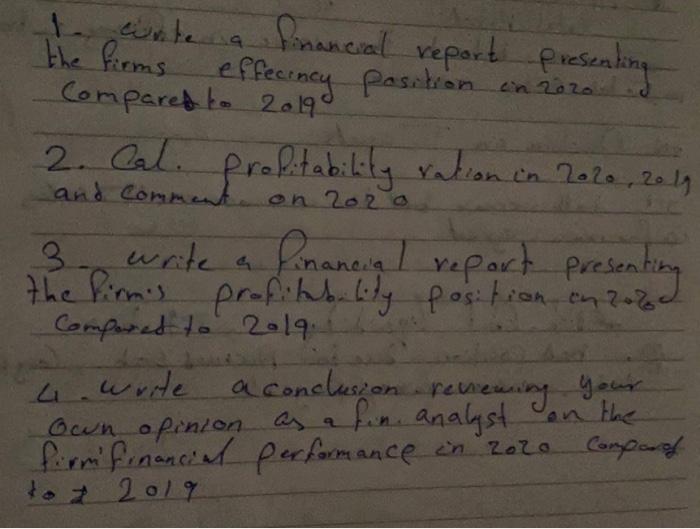 1- write a financial report presenting
the firms effecincy position in 2020
Compared to 2019
2. Cal. profitability ration in 2020, 2019
and comment on 2020
3- write a financial report presenting
the firm's profitability position in 2020
Compared to 2019.
4. write a conclusion reviewing your
own opinion as a fin. analyst on the
firm financial performance in 2020 Compared
to 2019